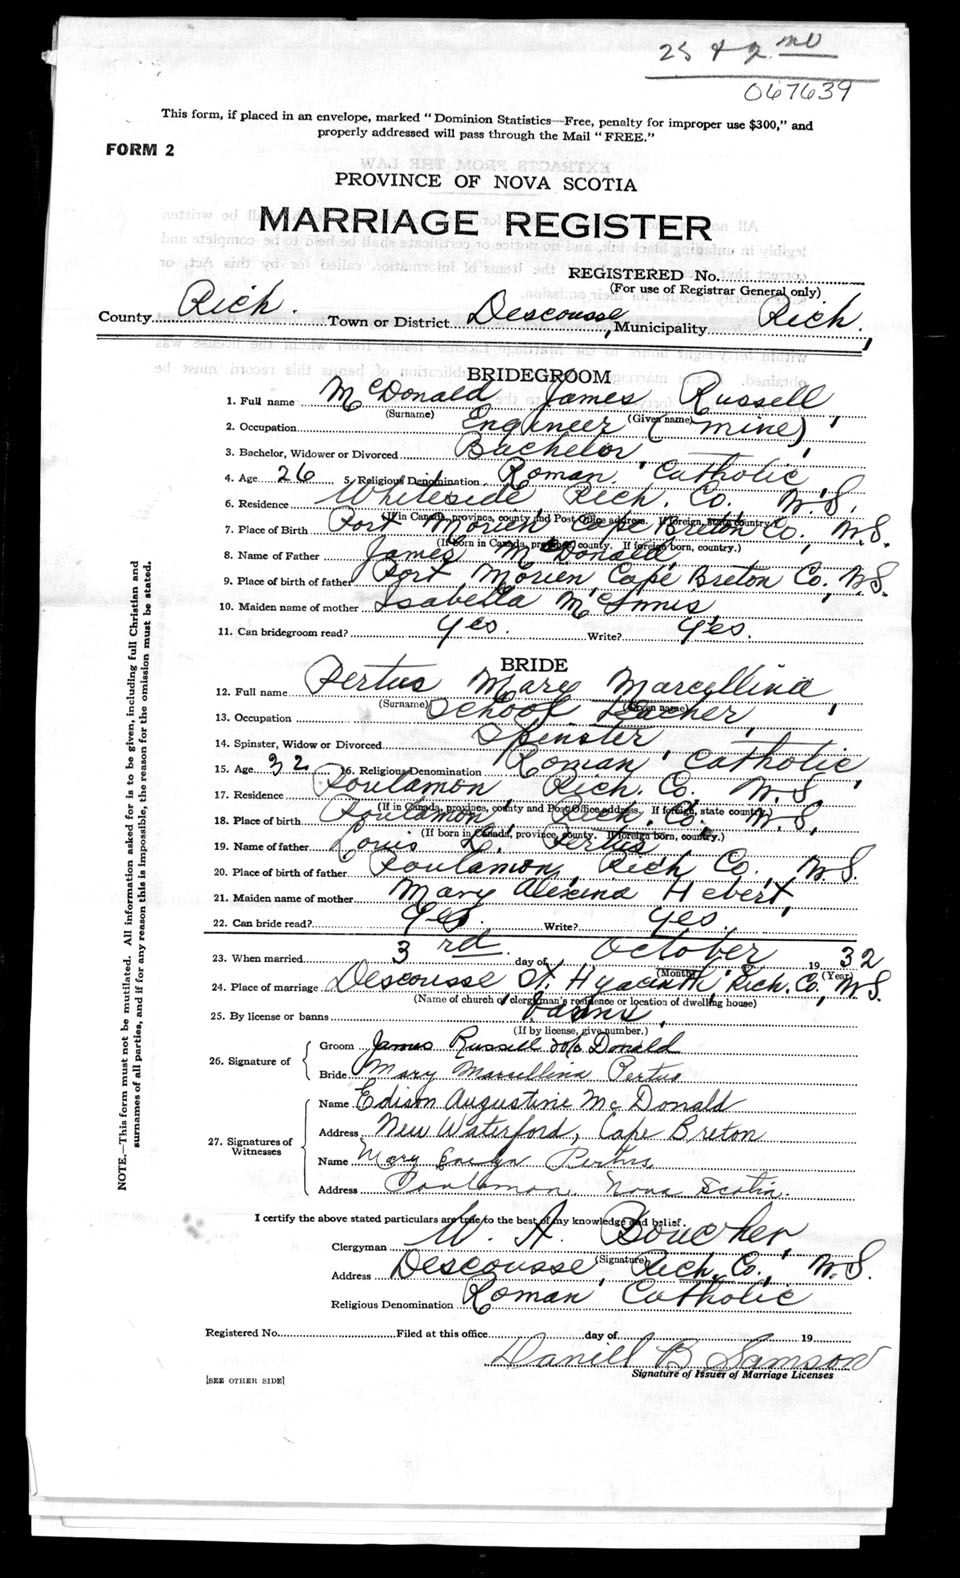 25 & 2 nd
067639
This form, if placed in an envelope, marked "Dominion Statistics—Free, penalty for improper use $300," and
properly addressed will pass through the Mail "FREE."
FORM 2
PROVINCE OF NOVA SCOTIA
MARRIAGE REGISTER
REGISTERED No.
(For use of Registrar General only)
County Rich. Town or District Descousse, Municipality Rich.
BRIDEGROOM
1. Full name McDonald James Russell
(Surname) (Given name)
2. Occupation Engineer (mine)
3. Bachelor, Widower or Divorced Bachelor
4. Age 26 5. Religious Denomination Roman Catholic
6. Residence Whiteside Rich. Co. N.S.
(If in Canada, province, county and Post Office address. If foreign, state country)
7. Place of Birth Port Morien Cape Breton Co., N.S.
(If born in Canada, province, county. If foreign born, country.)
8. Name of Father James McDonald
9. Place of birth of father Port Morien, Cape Breton Co., N.S.
10. Maiden name of mother Isabella McInnis
11. Can bridegroom read? Yes. Write? Yes.
BRIDE
12. Full name Pertus Mary Marcellina
(Surname) (Given name)
13. Occupation School Teacher
14. Spinster, Widow or Divorced Spinster
15. Age 32 16. Religious Denomination Roman Catholic
17. Residence Poulamon Rich. Co. N.S.
(If in Canada, province, county and Post Office address. If foreign, state country)
18. Place of birth Poulamon, Rich. Co. N.S.
(If born in Canada, province, county. If foreign born, country.)
19. Name of father Louis H. Pertus
20. Place of birth of father Poulamon, Rich. Co., N.S.
21. Maiden name of mother Mary Alexina Hebert
22. Can bride read? Yes. Write? Yes.
23. When married 3rd day of October 19 32
(Month) (Year)
24. Place of marriage Descousse St. Hyacinth, Rich. Co., N.S.
(Name of church or clergyman's residence or location of dwelling house)
25. By license or banns banns
(If by license, give number.)
26. Signature of
Groom James Russell McDonald
Bride Mary Marcellina Pertus
27. Signatures of Witnesses
Name Edison Augustine McDonald
Address New Waterford, Cape Breton
Name Mary Evelyn Pertus
Address Poulamon, Nova Scotia.
I certify the above stated particulars are true to the best of my knowledge and belief.
Clergyman W. A. Boucher
(Signature)
Address Descousse, Rich. Co., N.S.
Religious Denomination Roman Catholic
Registered No. Filed at this office day of 19
Daniel B Samson
Signature of Issuer of Marriage Licenses
[SEE OTHER SIDE]
NOTE.—This form must not be mutilated. All information asked for is to be given, including full Christian and
surnames of all parties, and if for any reason this is impossible, the reason for the omission must be stated.